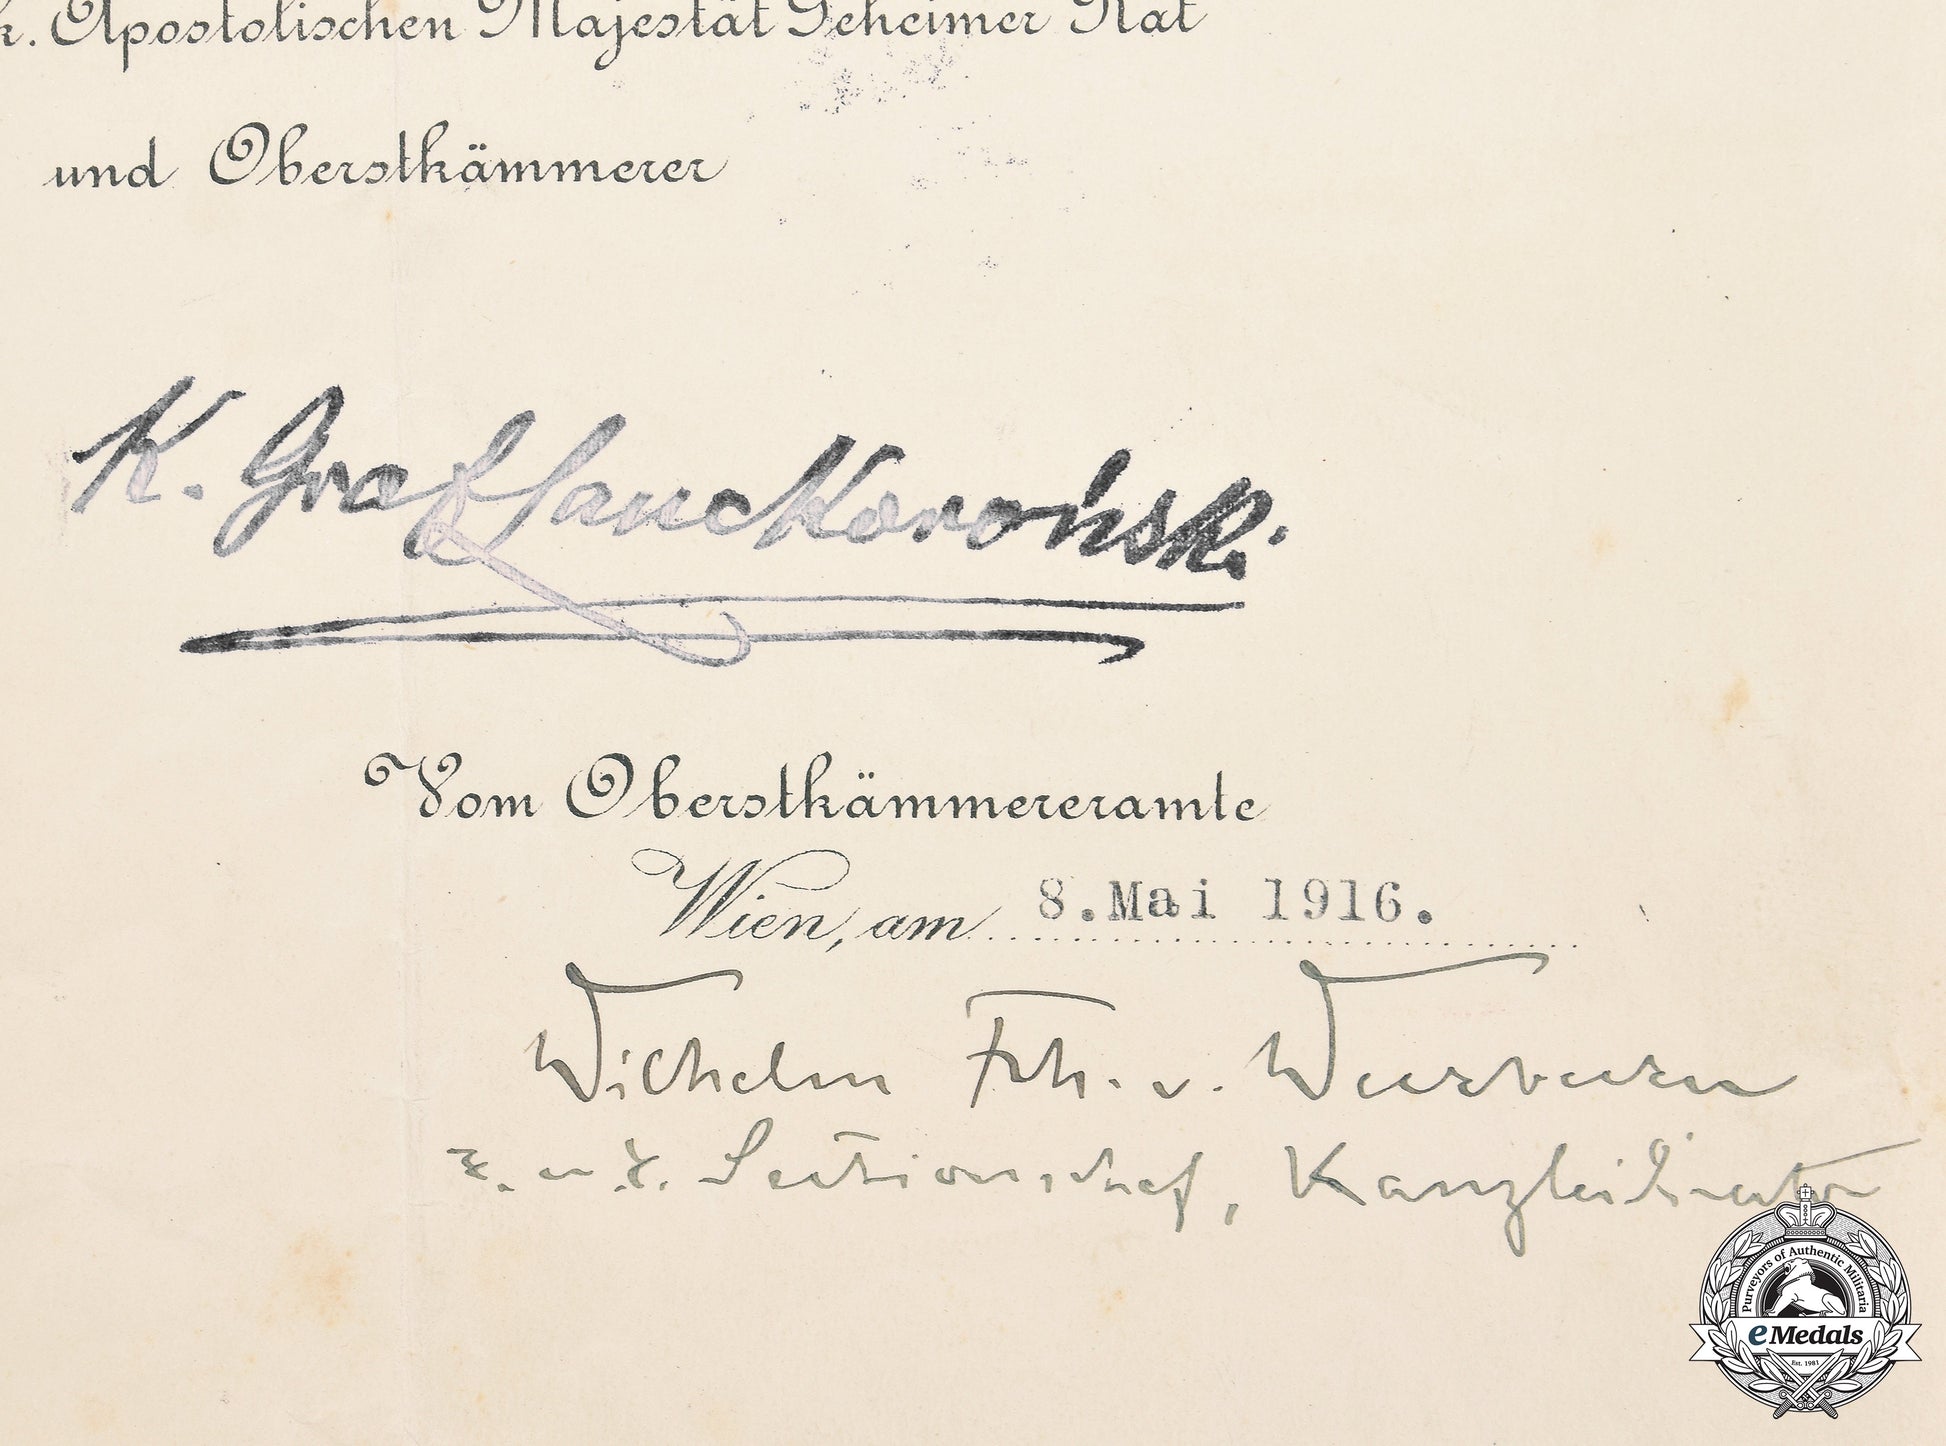 k. Apostolischen Majestät Geheimer Rat
und Oberstkämmerer
K. Graf Lanckoroński.
Vom Oberstkämmereramte
Wien, am 8.Mai 1916.
Wilhelm Frh. v. Weckbecker
k. u. k. Sectionschef, Kanzleidirektor
Purveyors of Authentic Militaria
eMedals
Est. 1983